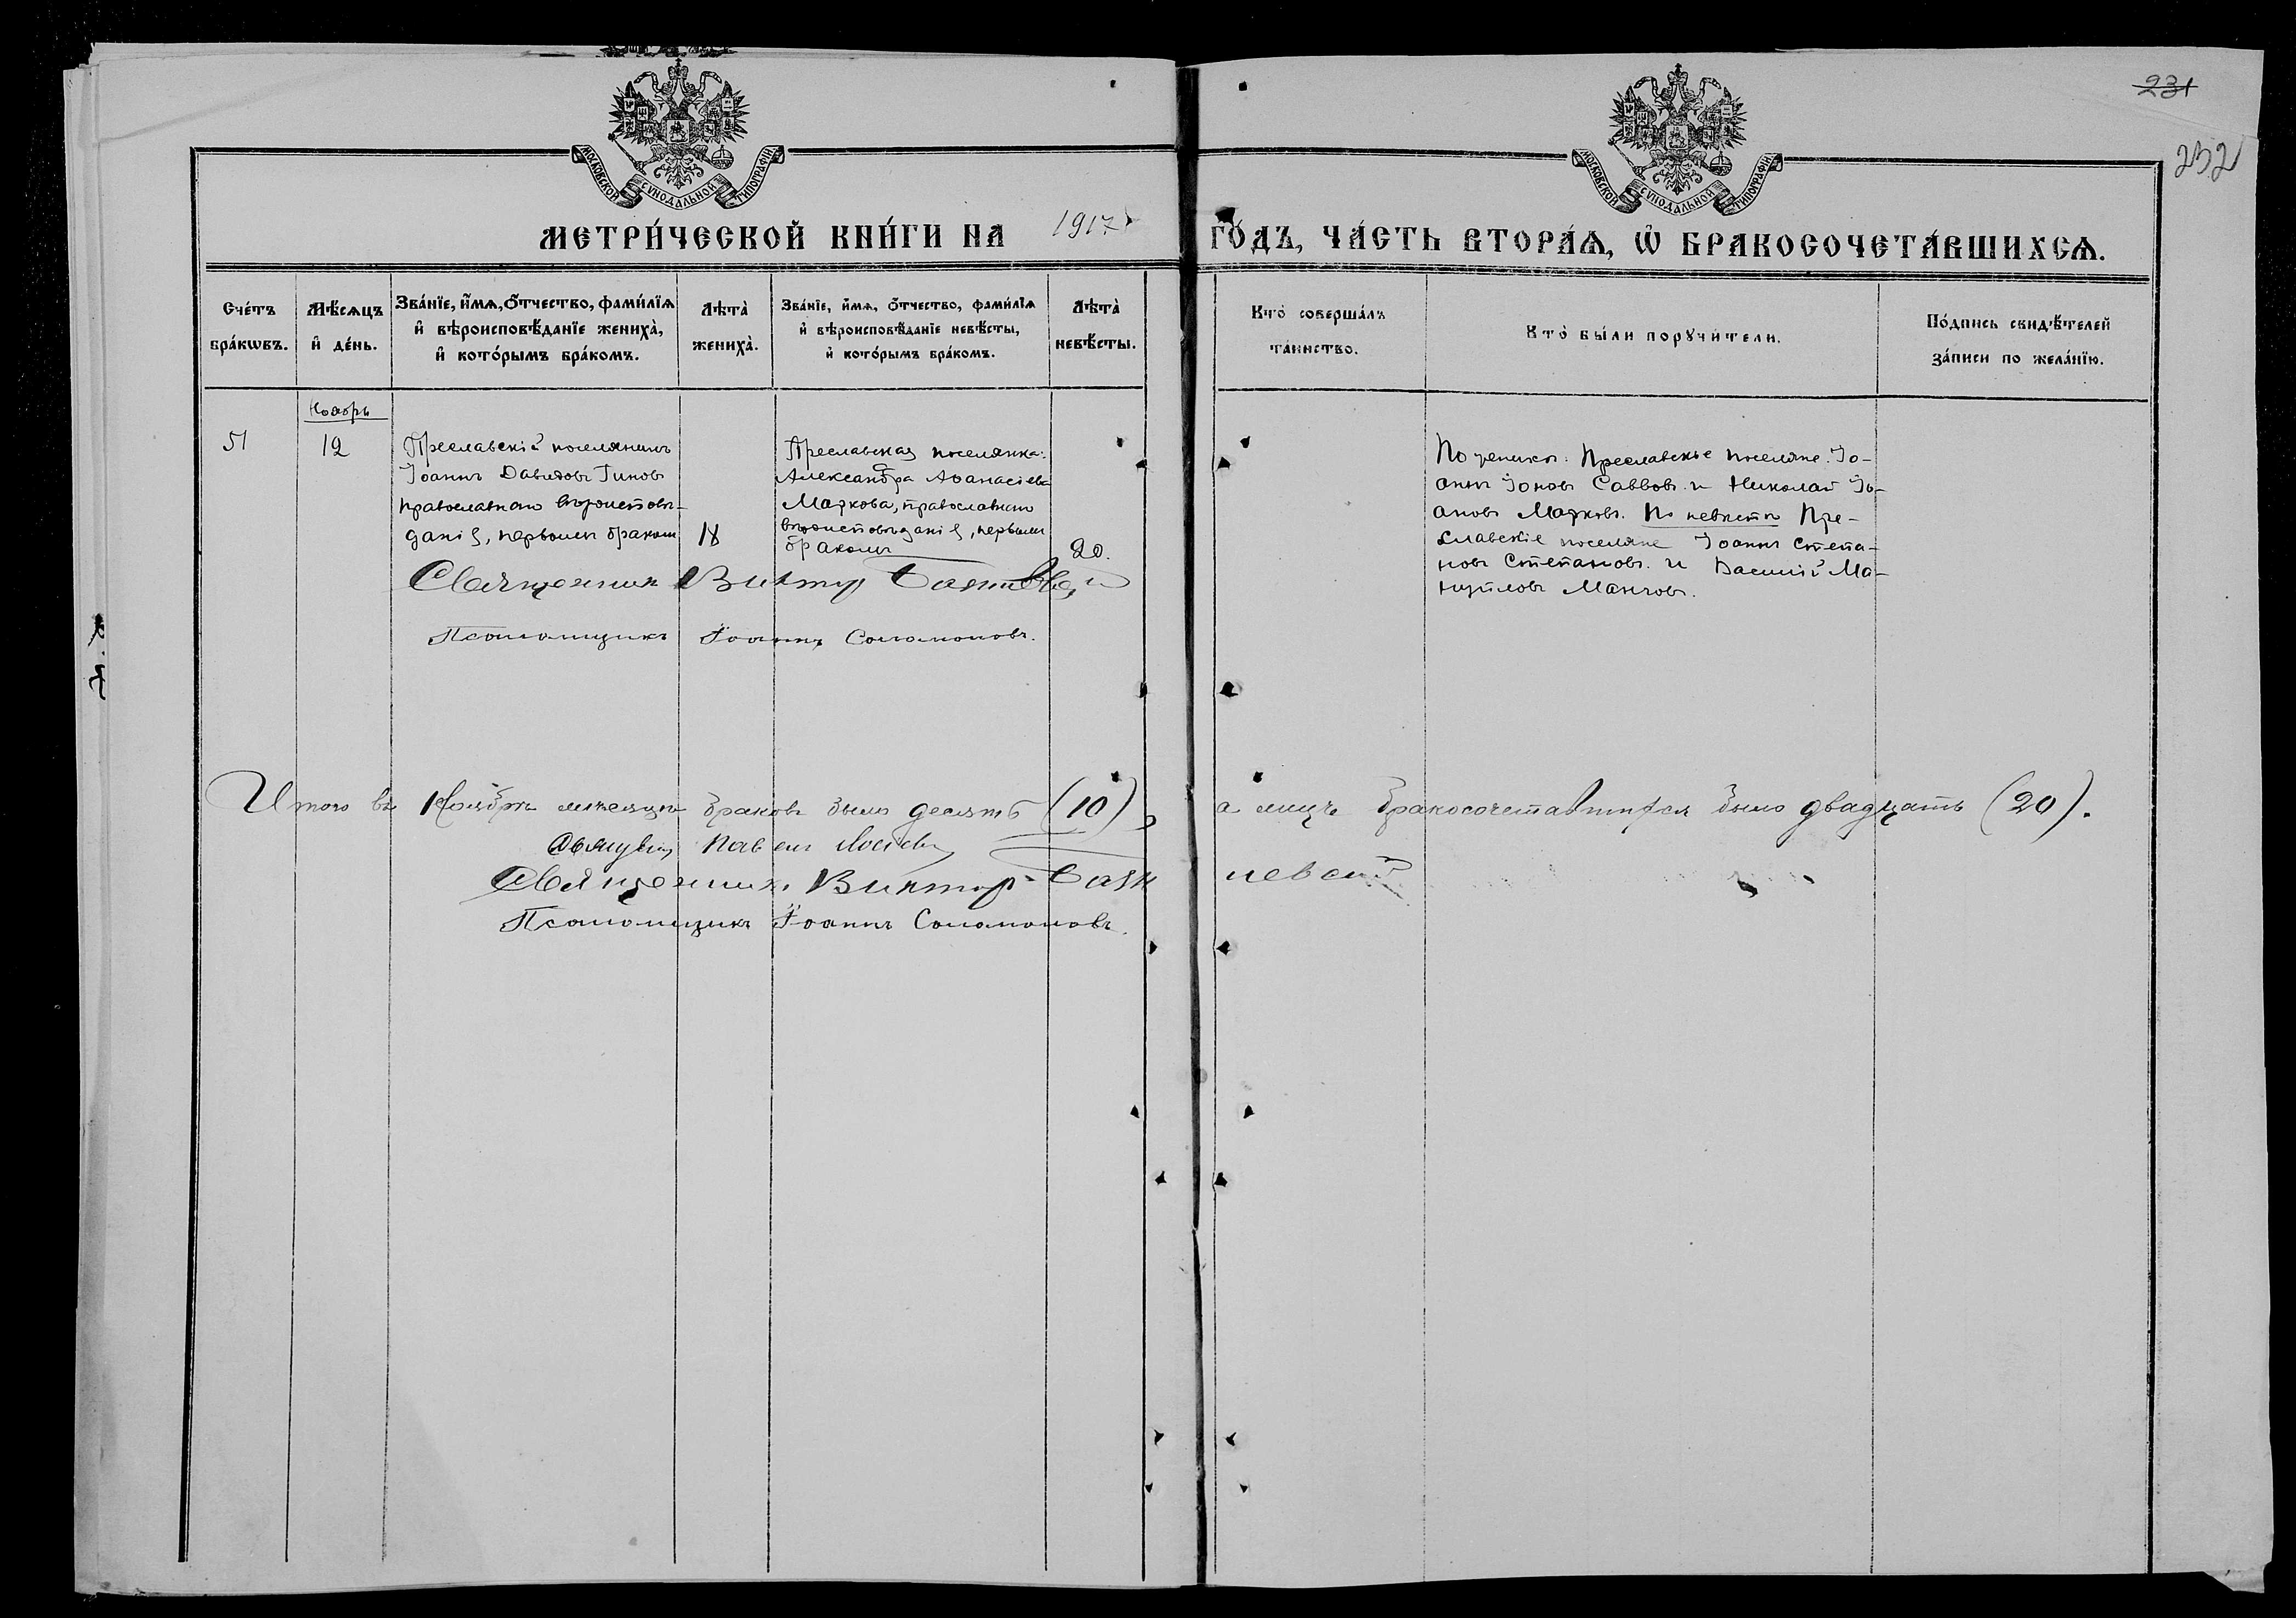 231
232
МОСКОВСКОЙ СѴНОДАЛЬНОЙ ТИПОГРАФІИ
МОСКОВСКОЙ СѴНОДАЛЬНОЙ ТИПОГРАФІИ
МЕТРИ́ЧЕСКОЙ КНИ́ГИ НА 1917 ГО́ДЪ, ЧА́СТЬ ВТОРА́Ѧ, Ѡ҆ БРАКОСОЧЕТА́ВШИХСѦ.
Сче́тъ
бра́кѡвъ.
Мѣ́сѧцъ
и҆ де́нь.
Зва́нїе, и҆́мѧ, ѻ҆́тчество, фами́лїѧ
и҆ вѣроисповѣ́данїе жениха̀,
и҆ кото́рымъ бра́комъ.
Лѣта̀
жениха̀.
Зва́нїе, и҆́мѧ, ѻ҆́тчество, фами́лїѧ
и҆ вѣроисповѣ́данїе невѣ́сты,
и҆ кото́рымъ бра́комъ.
Лѣта̀
невѣ́сты.
Кто̀ соверша́лъ
та́инство.
Кто̀ бы́ли порꙋчи́тели.
По́дпись свидѣ́телей
за́писи по жела́нїю.
Ноябрь
51
12
Преславскій поселянинъ
Іоаннъ Давидовъ Гиновъ
православнаго вѣроисповѣ-
данія, первымъ бракомъ
18
Преславская поселянка:
Александра Аѳанасіева
Маркова, православнаго
вѣроисповѣданія, первымъ
бракомъ
20.
По женихѣ: Преславскіе поселяне: Іо-
аннъ Іоновъ Савовъ и Николай Іо-
ановъ Марковъ. По невѣстѣ Пре-
славскіе поселяне Іоаннъ Степа-
новъ Степановъ и Василій Ма-
нуиловъ Манчовъ.
Священникъ Викторъ
Псаломщикъ Іоаннъ Соломоновъ.
Итого въ Ноябрѣ мѣсяцѣ браковъ было десять (10), а лицъ бракосочетавшихся было двадцать (20).
Павелъ
Священникъ Викторъ
Псаломщикъ Іоаннъ Соломоновъ.